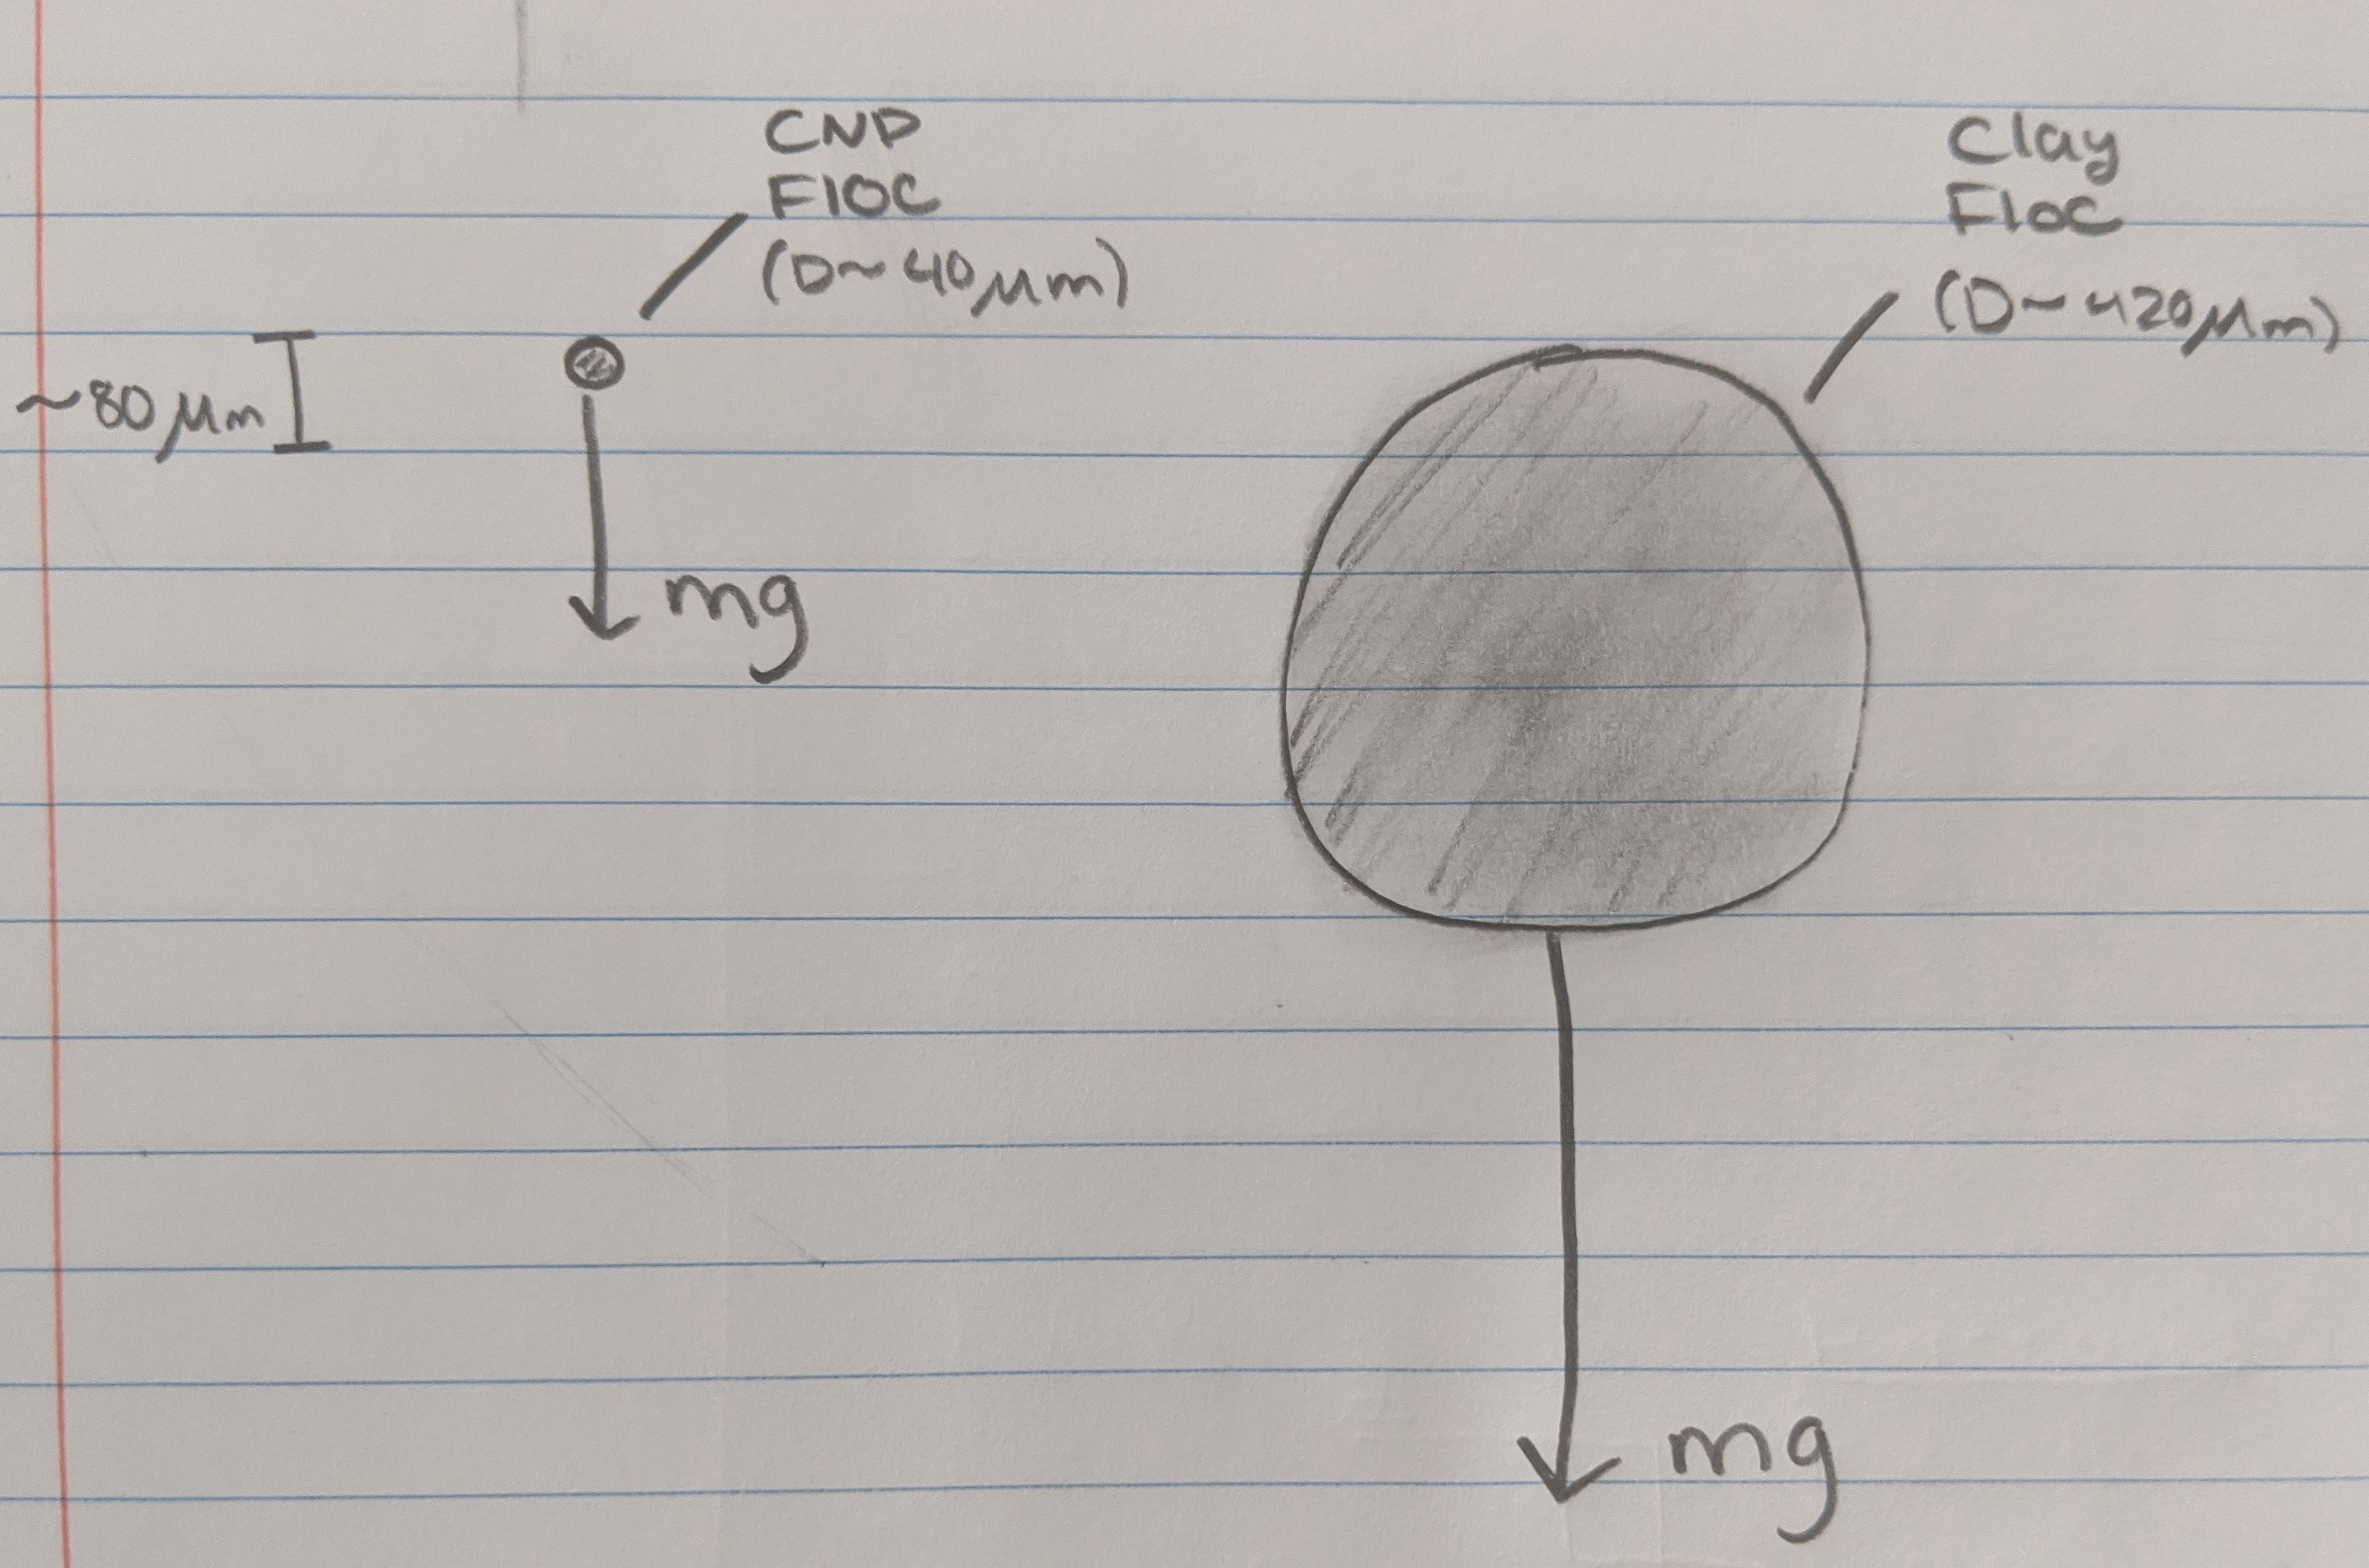 CNP
Floc
(D~40μm)
~80μm
mg
Clay
Floc
(D~420μm)
mg